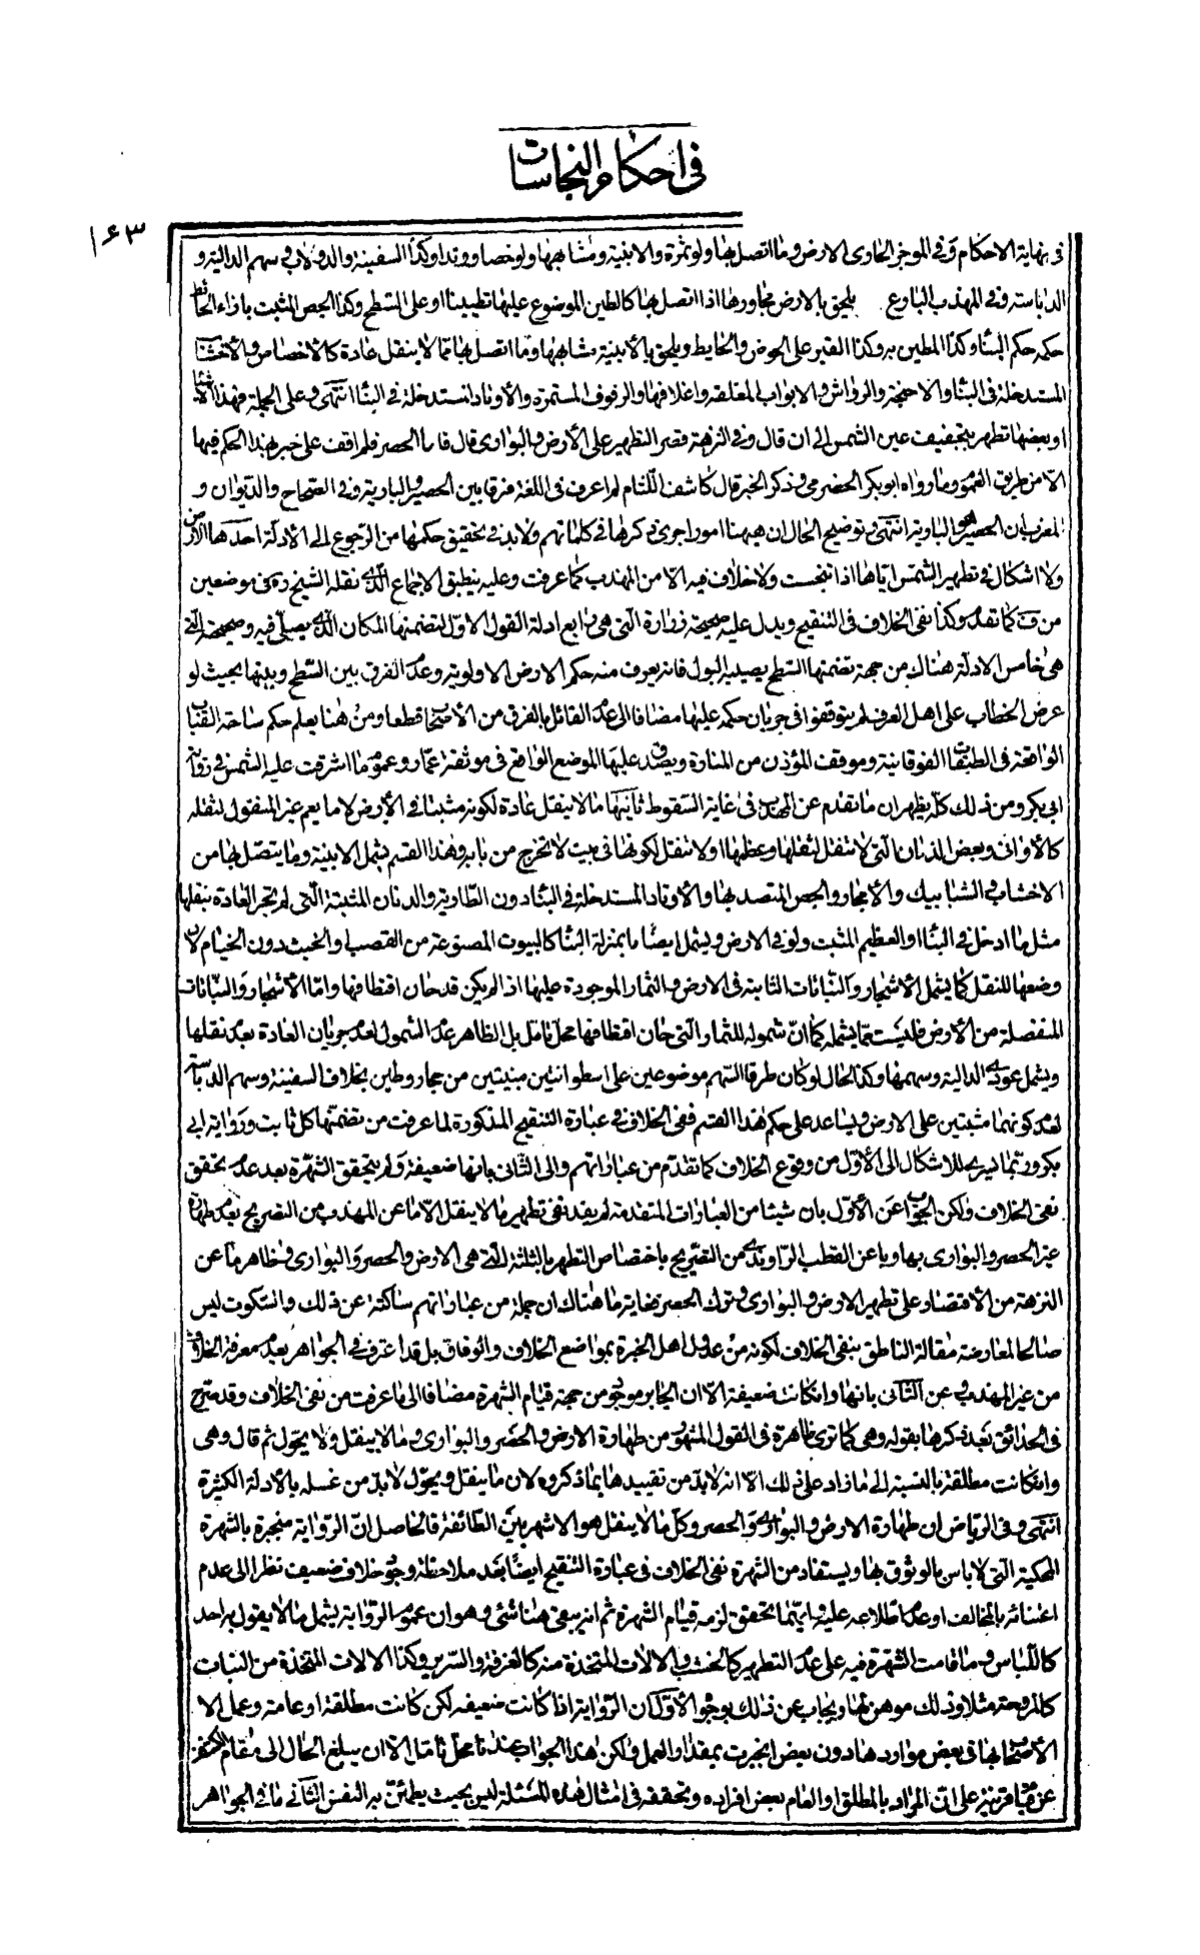 في احكام النجاسات
١٦٣
في نهاية الاحكام وفي الموجز الحاوى الارض وما اتصل بها ولو ثمرة والابنية ومشابهها ولو خصا ووتدا وكذا السفينة والدولاب وسهم الدالية و
الدباسة وفي المهذب البارع يلحق بالارض مجاورها اذا اتصل بها كالطين الموضوع عليها تطيينا او على السطح وكذا الجص المثبت بازاء الحائط
حكمه حكم البناء وكذا المطين به وكذا القير على الحوض والحايط ويلحق بالأبنية مشابهها وما اتصل بها مما لا ينقل عادة كالأخصاص والأخشاب
المستدخلة في البناء والاجنحة والرواشن والابواب المغلقة واغلاقها والرفوف المستمرة والأوتاد المستدخلة في البناء انتهى وعلى الجملة فهذه الاشياء
او بعضها تطهر بتجفيف عين الشمس الى ان قال وفي النزهة قصر التطهير على الأرض والبوارى قال فاما الحصر فلم اقف على خبر بهذا الحكم فيها
الا من طريق العموم وما رواه ابوبكر الحضرمي وذكر الخبر قال كاشف اللثام لم اعرف في اللغة فرقا بين الحصير والبارية وفي الصحاح والديوان و
المعرب ان الحصير هو البارية انتهى وتوضيح الحال ان هيهنا امورا جرى ذكرها في كلماتهم ولا بد في تحقيق حكمها من الرجوع الى الأدلة احدها الارض
ولا اشكال في تطهير الشمس اياها اذا تنجست ولا خلاف فيه الا من المهذب كما عرفت وعليه ينطبق الاجماع الذي نقله الشيخ ره في موضعين
من ف كما تقدم وكذا نفى الخلاف في التنقيح ويدل عليه صحيحة زرارة التي هي رابع ادلة القول الاول لتضمنها المكان الذي يصلى فيه وصحيحته التي
هي خامس الادلة هناك من جهة تضمنها السطح يصيبه البول فانه يعرف منه حكم الارض الاولوية وعدم الفرق بين السطح وبينها بحيث لو
عرض الخطاب على اهل العرف لم يتوقفوا في جريان حكمه عليها مضافا الى عدم القائل بالفرق من الأصحاب قطعا ومن هنا يعلم حكم ساحة القباب
الواقعة في الطبقات الفوقانية وموقف المؤذن من المنارة ويصدق عليها الموضع الواقع في موثقة عمار وعموم ما اشرقت عليه الشمس في رواية
ابى بكر ومن ذلك كله يظهر ان ما تقدم عن المهذب في غاية السقوط ثانيها ما لا ينقل عادة لكونه مثبتا في الأرض لا ما يعم غير المنقول لثقله
كالأوانى وبعض الدنان التي لا تنقل لثقلها وعظمها او لا تنقل لكونها في بيت لا تخرج من بابه وهذا القسم يشمل الابنية وما يتصل بها من
الاخشاب والشبابيك والأحجار والجص المتصد بها والأوتاد المستدخلة في البناء دون الطارية والدنان المثبتة التي لم تجر العادة بنقلها
مثل ما ادخل في البناء او العظيم المثبت ولو في الارض ويشمل ايضا ما بمنزلة البناء كالبيوت المصنوعة من القصب والخشب دون الخيام لان
وضعها للنقل كما يشمل الأشجار والنباتات الثابتة في الارض والثمار الموجودة عليها اذا لم يكن قد حان اقتطافها واما الأشجار والنباتات
المنفصلة من الأرض فليست مما يشمله كما ان شموله للثمار التي حان اقتطافها محل تأمل بل الظاهر عدم الشمول لعدم جريان العادة بعدم نقلها
ويشمل عودي الدالية وسهمها وكذا الحال لو كان طرفا السهم موضوعين على اسطوانتين مبنيتين من حجار وطين بخلاف السفينة وسهم الدباسة
لعدم كونهما مثبتين على الارض ويساعد على حكم هذا القسم نفى الخلاف في عبارة التنقيح المذكورة لما عرفت من تضمنها كل ثابت ورواية ابى
بكر وربما يسرى للاشكال الى الأول من وقوع الخلاف كما تقدم من عباراتهم والى الثانى بانها ضعيفة ولم يتحقق الشهرة بعد عدم تحقق
نفى الخلاف ولكن الجواب عن الأول بان شيئا من العبارات المتقدمة لم يفد نفى تطهير ما لا ينقل الا ما عن المهذب من التصريح بعدم طهارة
غير الحصر والبوارى بها وما عن القطب الراوندى من التصريح باختصاص التطهير بالثلثة التي هي الارض والحصر والبوارى وظاهر ما عن
النزهة من الأقتصار على تطهير الارض والبوارى وترك الحصر فغاية ما هناك ان جملة من عباراتهم ساكتة عن ذلك والسكوت ليس
صالحا لمعارضة مقالة الناطق بنفى الخلاف لكونه من عدول اهل الخبرة بمواضع الخلاف والوفاق بل قد اعترف في الجواهر بعدم معرفة الخلاف
من غير المهذب وعن الثانى بانها وان كانت ضعيفة الا ان الجابر موجود من جهة قيام الشهرة مضافا الى ما عرفت من نفى الخلاف وقد صرح
في الحدائق بعد ذكرها بقوله وهي كما ترى ظاهرة في القول المشهور من طهارة الارض والحصر والبوارى وما لا ينقل ولا يحول ثم قال وهي
وان كانت مطلقة بالنسبة الى ما زاد على ذلك الا انه لا بد من تقييدها بما ذكروه لان ما ينقل ويحول لا بد من غسله بالأدلة الكثيرة
انتهى وفي الرياض ان طهارة الارض والبوارى والحصر وكل ما لا ينقل هو الاشهر بين الطائفة فالحاصل ان الرواية منجبرة بالشهرة
المحكية التي لا باس بالوثوق بها ويستفاد من الشهرة نفى الخلاف في عبارة التنقيح ايضا بعد ملاحظة وجود خلاف ضعيف نظرا الى عدم
اعتنائه بالمخالف او عدم اطلاعه عليه وايتما تحقق لزمه قيام الشهرة ثم انه بقى هنا شئ وهو ان عموم الرواية يشمل ما لا يقول به احد
كاللباس وما قامت الشهرة فيه على عدم التطهير كالخشب والالات المتخذة منه كالغرفة والسرير وكذا الالات المتخذة من النبات
كالمروحة مثلا وذلك موهن لها ويجاب عن ذلك بوجوه الأول ان الرواية اذا كانت ضعيفة لكن كانت مطلقة او عامة وعمل الا
الأصحاب بها في بعض مواردها دون بعض انجبرت بمقدار العمل ولكن هذا الجواب عندنا محل تأمل الا ان يبلغ الحال الى مقام الكشف
عن قيام قرينة على ان المراد بالمطلق او العام بعض افراده وتحققه في امثال هذه المسئلة ليس بحيث يطمئن به النفس الثانى ما في الجواهر